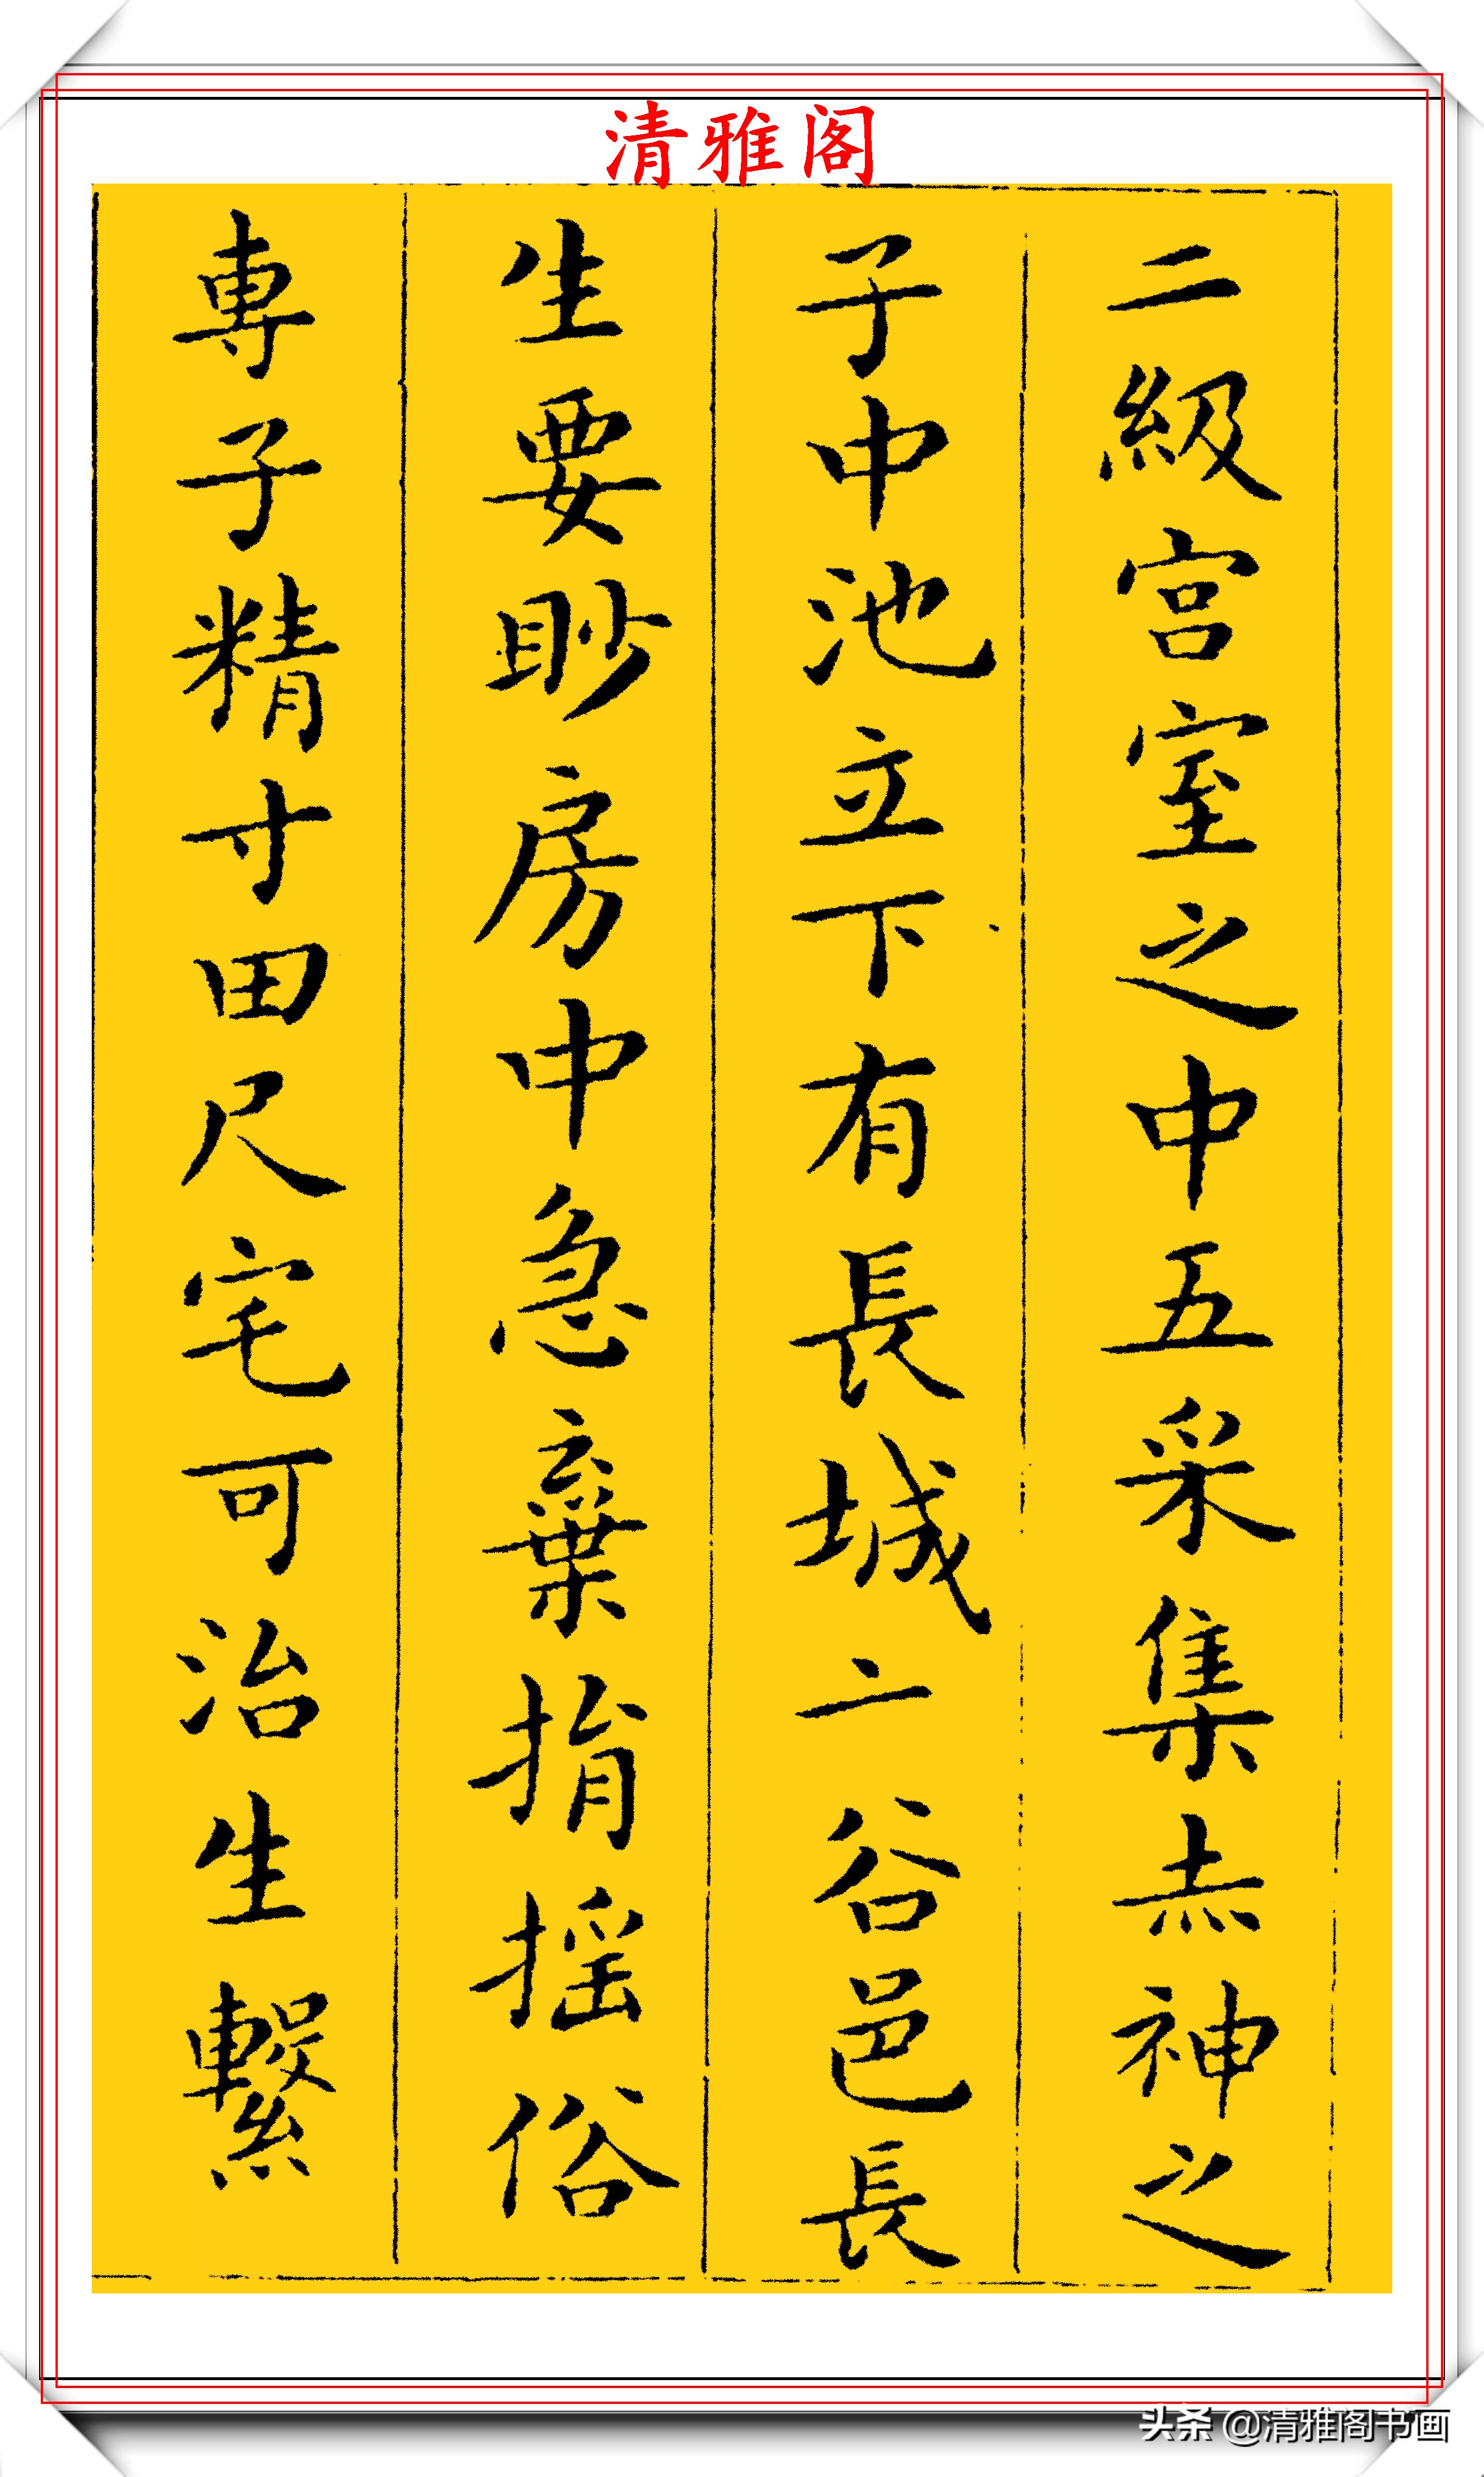 清雅阁
二級宫室之中五采集赤神之
子中池立下有長城亠谷邑長
生要眇房中急棄捐摇俗
専子精寸田尺宅可治生繫
头条 @清雅阁书画